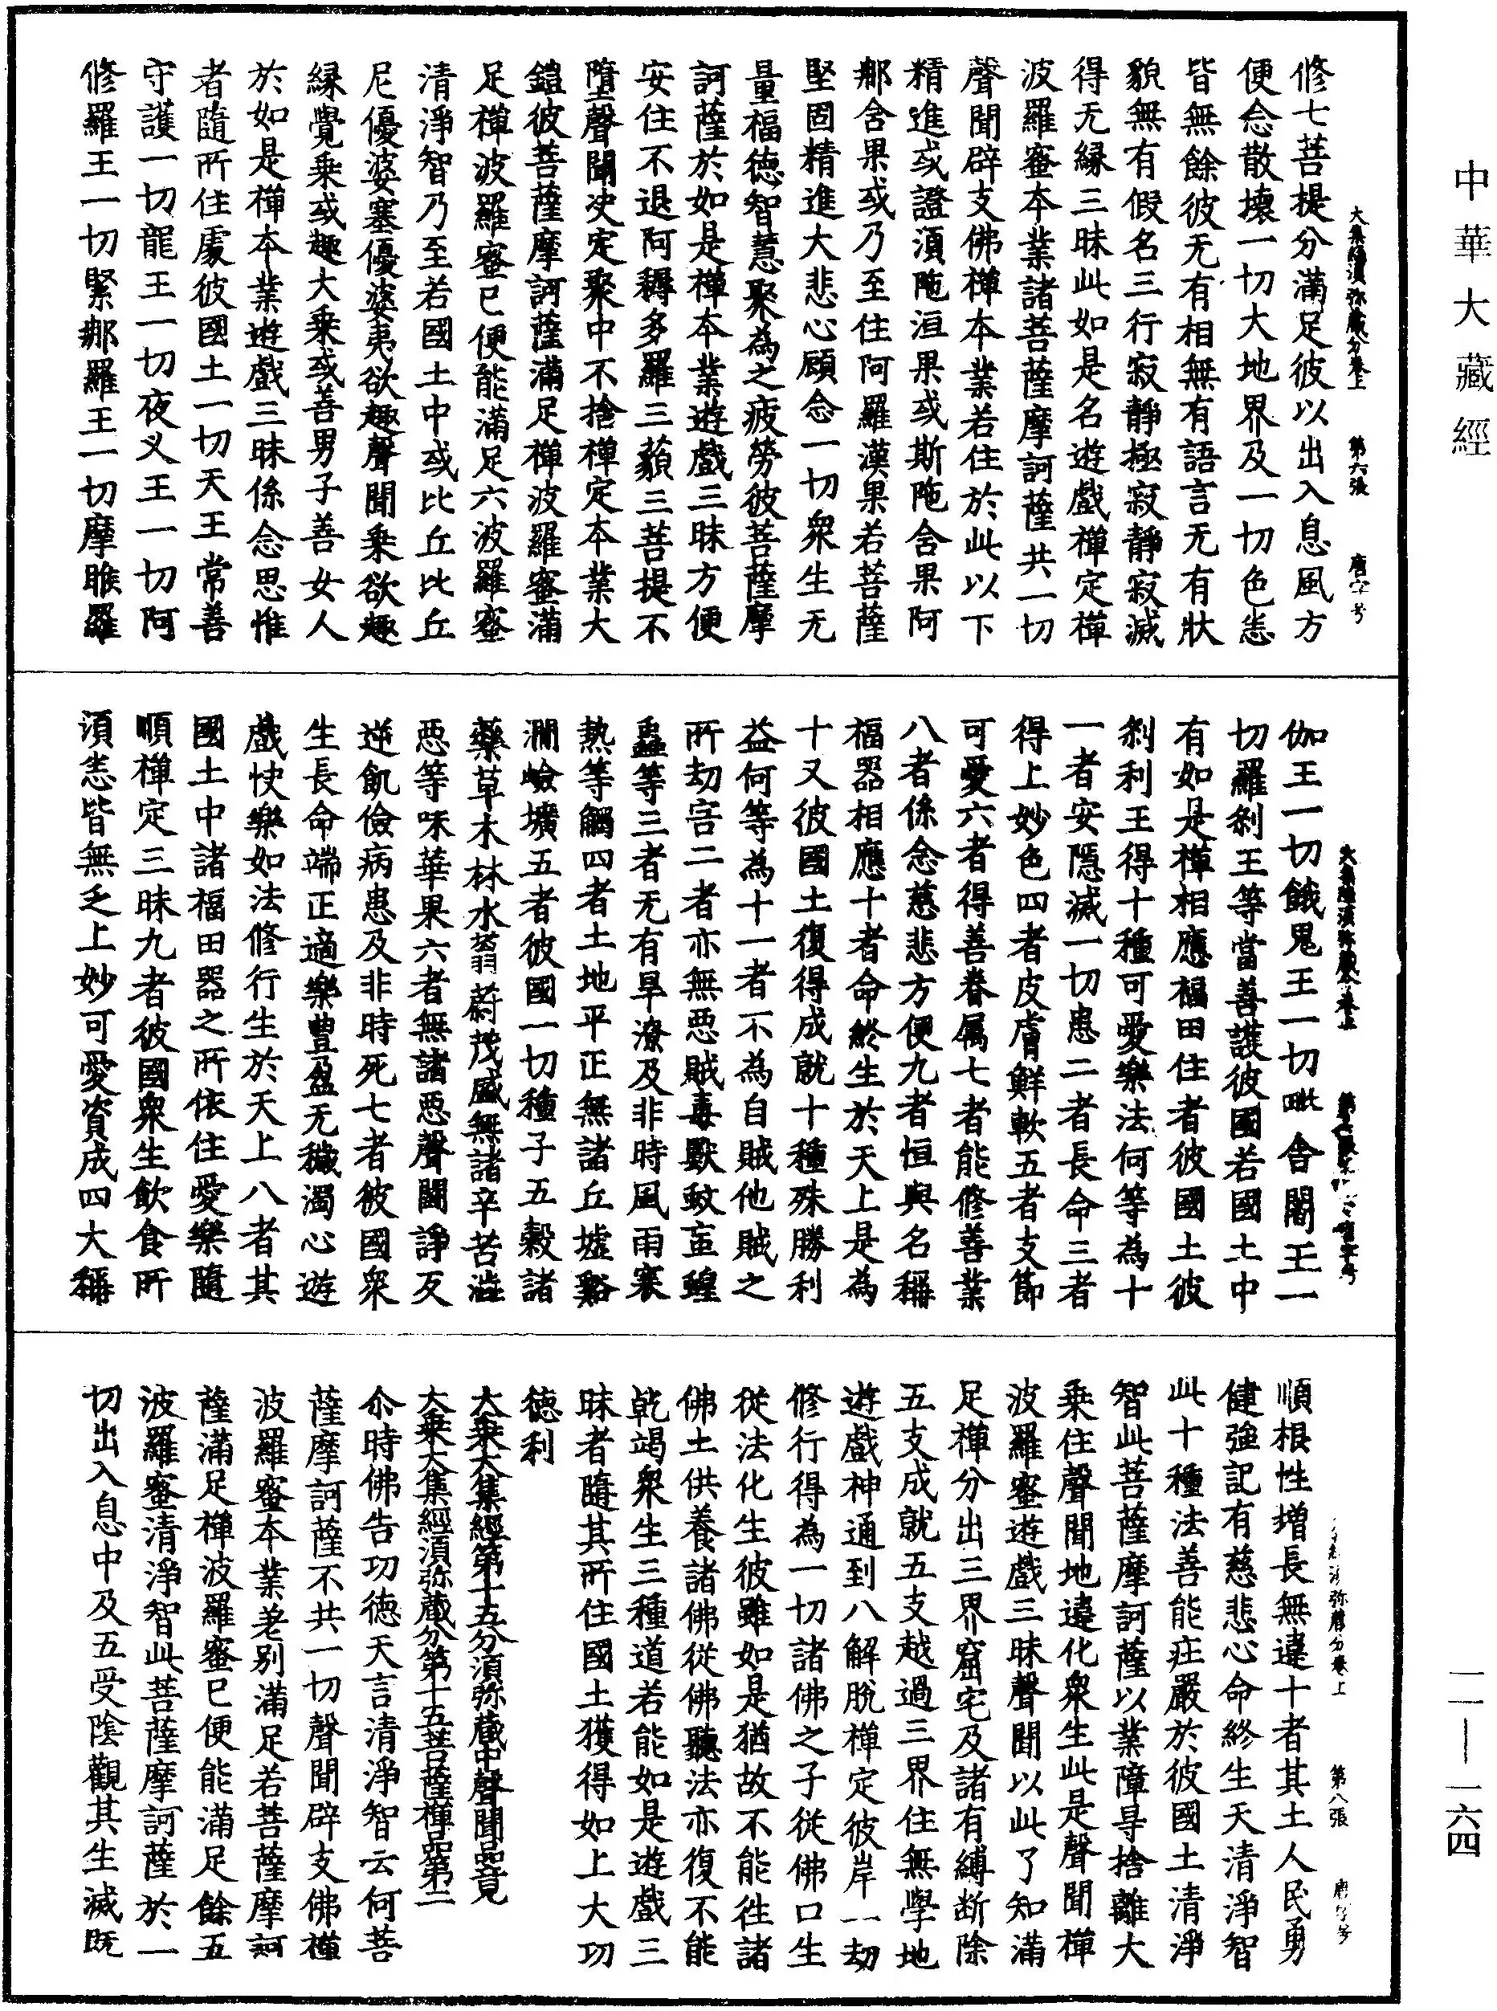 中華大藏經
大集經須弥藏分卷上　第六張
修七菩提分滿足彼以出入息風方
便念散壞一切大地界及一切色悉
皆無餘彼无有相無有語言无有狀
貌無有假名三行寂靜極寂靜寂滅
得无縁三昧此如是名遊戲禪定禪
波羅蜜本業諸菩薩摩訶薩共一切
聲聞辟支佛禪本業若住於此以下
精進或證須陁洹果或斯陁含果阿
那含果或乃至住阿羅漢果若菩薩
堅固精進大悲心顧念一切衆生无
量福德智慧聚為之疲勞彼菩薩摩
訶薩於如是禪本業遊戲三昧方便
安住不退阿耨多羅三藐三菩提不
墮聲聞決定聚中不捨禪定本業大
鎧彼菩薩摩訶薩滿足禪波羅蜜滿
足禪波羅蜜已便能滿足六波羅蜜
清淨智乃至若國土中或比丘比丘
尼優婆塞優婆夷欲趣聲聞乗欲趣
縁覺乗或趣大乗或善男子善女人
於如是禪本業遊戲三昧係念思惟
者隨所住處彼國土一切天王常善
守護一切龍王一切夜叉王一切阿
修羅王一切緊那羅王一切摩睺羅
伽王一切餓鬼王一切毗舍闍王一
切羅刹王等當善護彼國若國土中
有如是禪相應福田住者彼國土彼
刹利王得十種可愛樂法何等為十
一者安隱滅一切患二者長命三者
得上妙色四者皮膚鮮軟五者支節
可愛六者得善眷属七者能修善業
八者係念慈悲方便九者恒與名稱
福器相應十者命終生於天上是為
十又彼國土復得成就十種殊勝利
益何等為十一者不為自賊他賊之
所劫害二者亦無惡賊毒獸蚊䖟蝗
蟲等三者无有旱潦及非時風雨寒
熱等觸四者土地平正無諸丘墟谿
澗嶮壙五者彼國一切種子五穀諸
藥草木林水蓊蔚茂盛無諸辛苦澁
惡等味華果六者無諸惡聲鬭諍反
逆飢儉病患及非時死七者彼國衆
生長命端正適樂豊盈无穢濁心遊
戲快樂如法修行生於天上八者其
國土中諸福田器之所依住愛樂隨
順禪定三昧九者彼國衆生飲食所
須悉皆無乏上妙可愛資成四大稱
弥藏分卷上　第八張
順根性增長無違十者其土人民勇
健強記有慈悲心命終生天清淨智
此十種法善能庄嚴於彼國土清淨
智此菩薩摩訶薩以業障㝵捨離大
乗住聲聞地違化衆生此是聲聞禪
波羅蜜遊戲三昧聲聞以此了知滿
足禪分出三界窟宅及諸有縛断除
五支成就五支越過三界住無學地
遊戲神通到八解脫禪定彼岸一切
修行得為一切諸佛之子從佛口生
從法化生彼雖如是猶故不能徃諸
佛土供養諸佛從佛聽法亦復不能
乾竭衆生三種道若能如是遊戲三
昧者隨其所住國土獲得如上大功
德利
大乗大集經第十五分須弥藏中聲聞品竟
大乗大集經須弥藏分第十五菩薩禪品第二
尒時佛告功德天言清淨智云何菩
薩摩訶薩不共一切聲聞辟支佛禪
波羅蜜本業差別滿足若菩薩摩訶
薩滿足禪波羅蜜已便能滿足餘五
波羅蜜清淨智此菩薩摩訶薩於一
切出入息中及五受陰觀其生滅既
一一—一六四